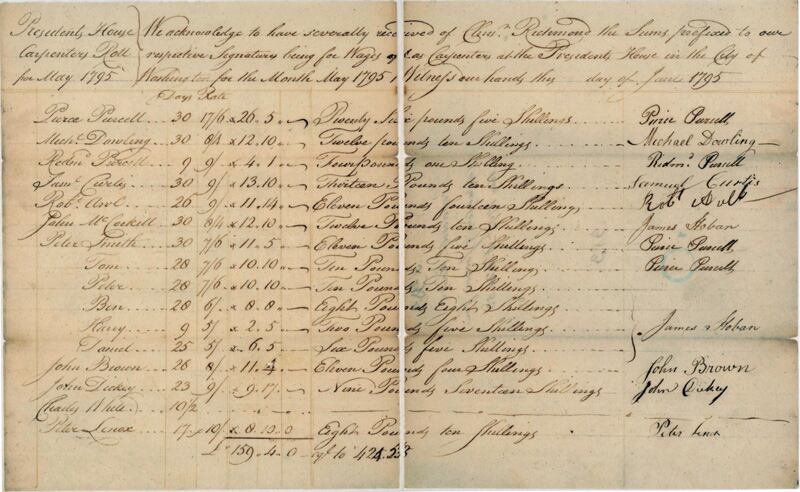 Presidents House We acknowledge to have severally received of Clemt. Richmond the Sums prefixed to our
Carpenters Roll respective Signatures being for Wages as Carpenters at the Presidents House in the City of
for May 1795 Washington for the Month May 1795 Witness our hands this day of June 1795
Days Rate
Pierce Purcell 30 17/6 26.5 Twenty Six pounds five Shillings Peirce Purcell
Michl. Dowling 30 8/4 12.10 Twelve pounds ten Shillings Michael Dowling
Redmd. Purcell 9 9/ 4.1 Four pounds one Shilling Redmd. Purcell
Saml. Curtis 30 9/ 13.10 Thirteen Pounds ten Shillings Samuel Curtis
Robt. Aul 26 9/ 11.14 Eleven Pounds fourteen Shillings Robt
Peter McCorkill 30 8/4 12.10 Twelve Pounds ten Shillings James Hoban
Peter Smith 30 7/6 11.5 Eleven Pounds five Shillings Pierce Purcell
Tom 28 7/6 10.10 Ten Pounds Ten Shillings Pierce Purcell
Peter 28 7/6 10.10 Ten Pounds Ten Shillings
Ben 28 6/ 8.8 Eight Pounds Eight Shillings
Harry 9 5/ 2.5 Two Pounds five Shillings James Hoban
Daniel 25 5/ 6.5 Six Pounds five Shillings
John Brown 28 8/ 11.4 Eleven Pounds four Shillings John Brown
John Dickey 23 9/ 9.17 Nine Pounds Seventeen Shillings John Dickey
Charles White 10½
Peter Lenox 17 10/ 8.10.0 Eight Pounds ten Shillings Peter Lenox
£ 159.4.0 eql. to 424.53